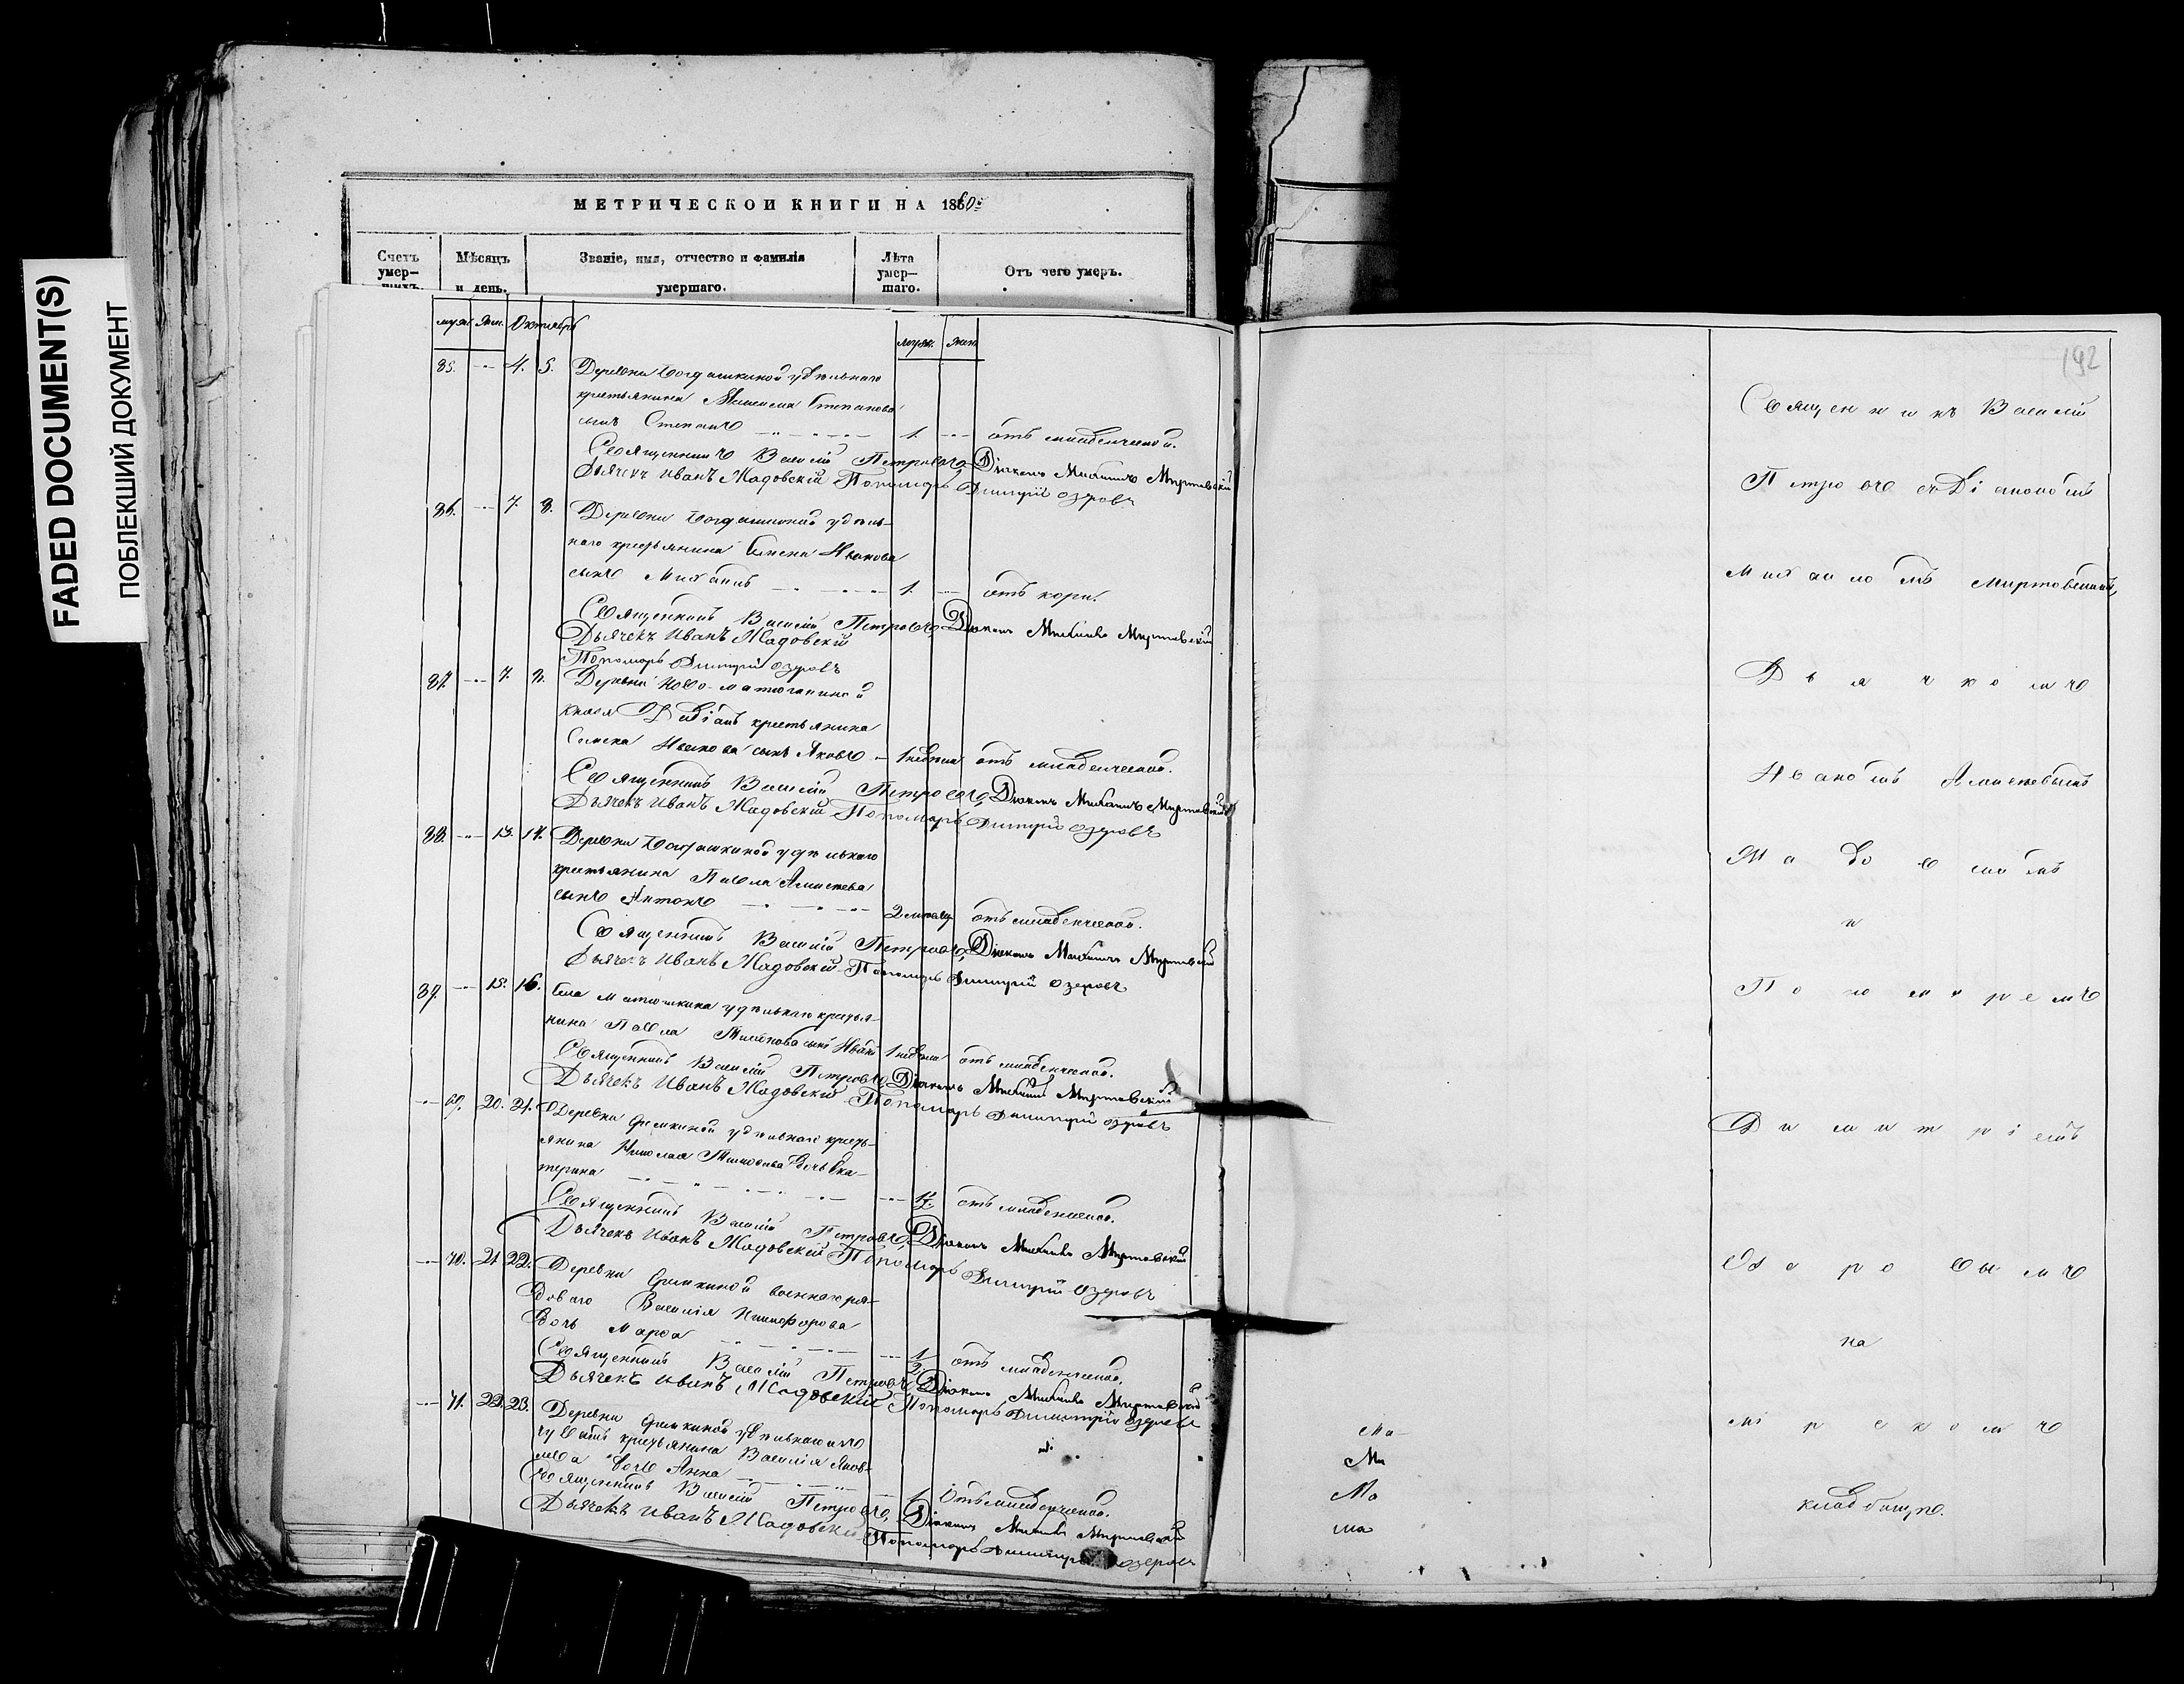 FADED DOCUMENT(S)
ПОБЛЕКШИЙ ДОКУМЕНТ
МЕТРИЧЕСКОЙ КНИГИ НА 1860:
Счетъ умер- шихъ.
Мѣсяцъ и день.
Званіе, имя, отчество и фамилія умершаго.
Лѣта умер- шаго.
Отъ чего умеръ.
муж. жен. Октябрь
муж. жен.
85. 4. 5. Деревни Богдашкиной удѣльнаго
крестьянина Максима Степанова
сынъ Степанъ 1. отъ младенческой.
Священникъ Василій Петровъ, Діаконъ Михаилъ Миртовскій
Дьячекъ Иванъ Жадовскій Пономарь Димитрій Озеровъ
86. 7. 8. Деревни Богдашкиной удѣль-
наго крестьянина Семена Иванова
сынъ Михаилъ 1. отъ кори.
Священникъ Василій Петровъ Діаконъ Михаилъ Миртовскій
Дьячекъ Иванъ Жадовскій
Пономарь Димитрій Озеровъ
87. 7. 8. Деревни Ново-матюшкиной
князя крестьянина
Семена Иванова сынъ Яковъ 1 недѣля отъ младенческой.
Священникъ Василій Петровъ, Діаконъ Михаилъ Миртовскій
Дьячекъ Иванъ Жадовскій Пономарь Димитрій Озеровъ
88. 13. 14. Деревни Богдашкиной удѣльнаго
крестьянина Павла Алексѣева
сынъ Антонъ 2 мѣсяц. отъ младенческой.
Священникъ Василій Петровъ, Діаконъ Михаилъ Миртовскій
Дьячекъ Иванъ Жадовскій Пономарь Димитрій Озеровъ
89. 15. 16. Села Матюшкина удѣльнаго крестья-
нина Павла сынъ Иванъ 1 недѣля отъ младенческой.
Священникъ Василій Петровъ, Діаконъ Михаилъ Миртовскій
Дьячекъ Иванъ Жадовскій Пономарь Димитрій Озеровъ
69. 20. 21. Деревни удѣльнаго кресть-
янина Николая дочь Ека-
терина отъ младенческой.
Священникъ Василій Петровъ, Діаконъ Михаилъ Миртовскій
Дьячекъ Иванъ Жадовскій Пономарь Димитрій Озеровъ
70. 21. 22. Деревни военнаго ря-
доваго Василія Никифорова
дочь Марфа отъ младенческой.
Священникъ Василій Петровъ, Діаконъ Михаилъ Миртовскій
Дьячекъ Иванъ Жадовскій Пономарь Димитрій Озеровъ
71. 22. 23. Деревни удѣльнаго
крестьянина Василія Яков-
лева дочь Анна 1 отъ младенческой.
Священникъ Василій Петровъ, Діаконъ Михаилъ Миртовскій
Дьячекъ Иванъ Жадовскій
Пономарь Димитрій Озеровъ
192
Священникъ Василій
Петровъ съ Діакономъ
Михаиломъ Миртовскимъ,
Дьячкомъ
Иваномъ Алексѣевымъ
Жадовскимъ
и
Пономаремъ
Димитріемъ
Озеровымъ
на
мірскомъ
кладбищѣ.